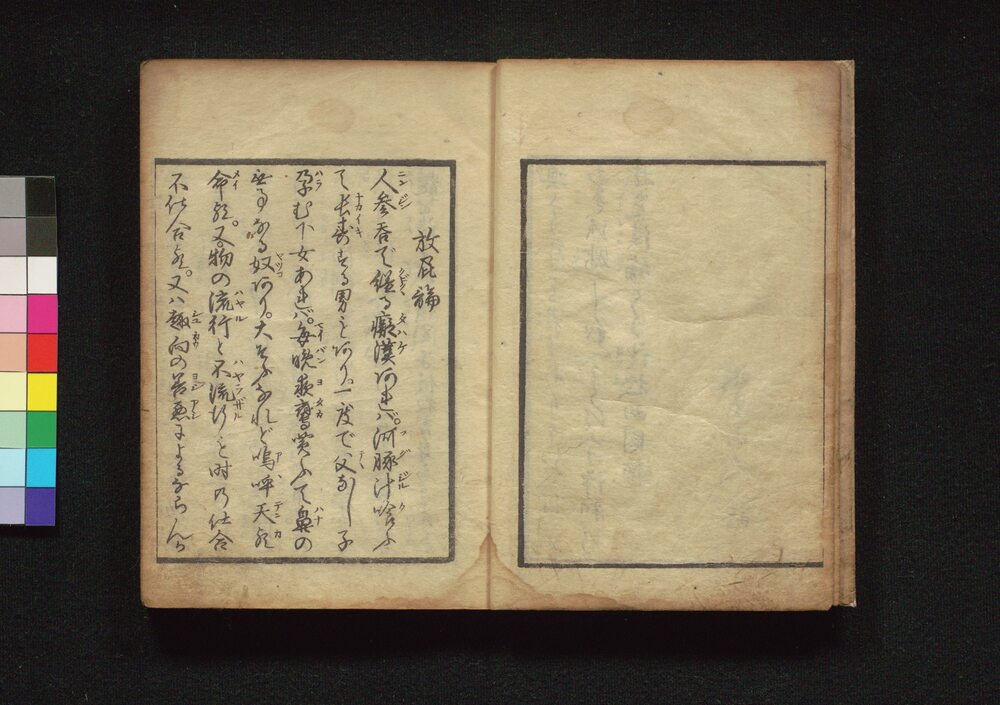 放屁論
人参呑で縊る癡漢あれば。河豚汁喰ふ
て長寿する男もあり。一度で父なし子
孕む下女あれば。毎晩夜鷹買ふて鼻の
無事なる奴あり。大そふなれど嗚呼天歟
命歟。又物の流行と不流行も時の仕合
不仕合歟。又ハ趣向の善悪によるならんか